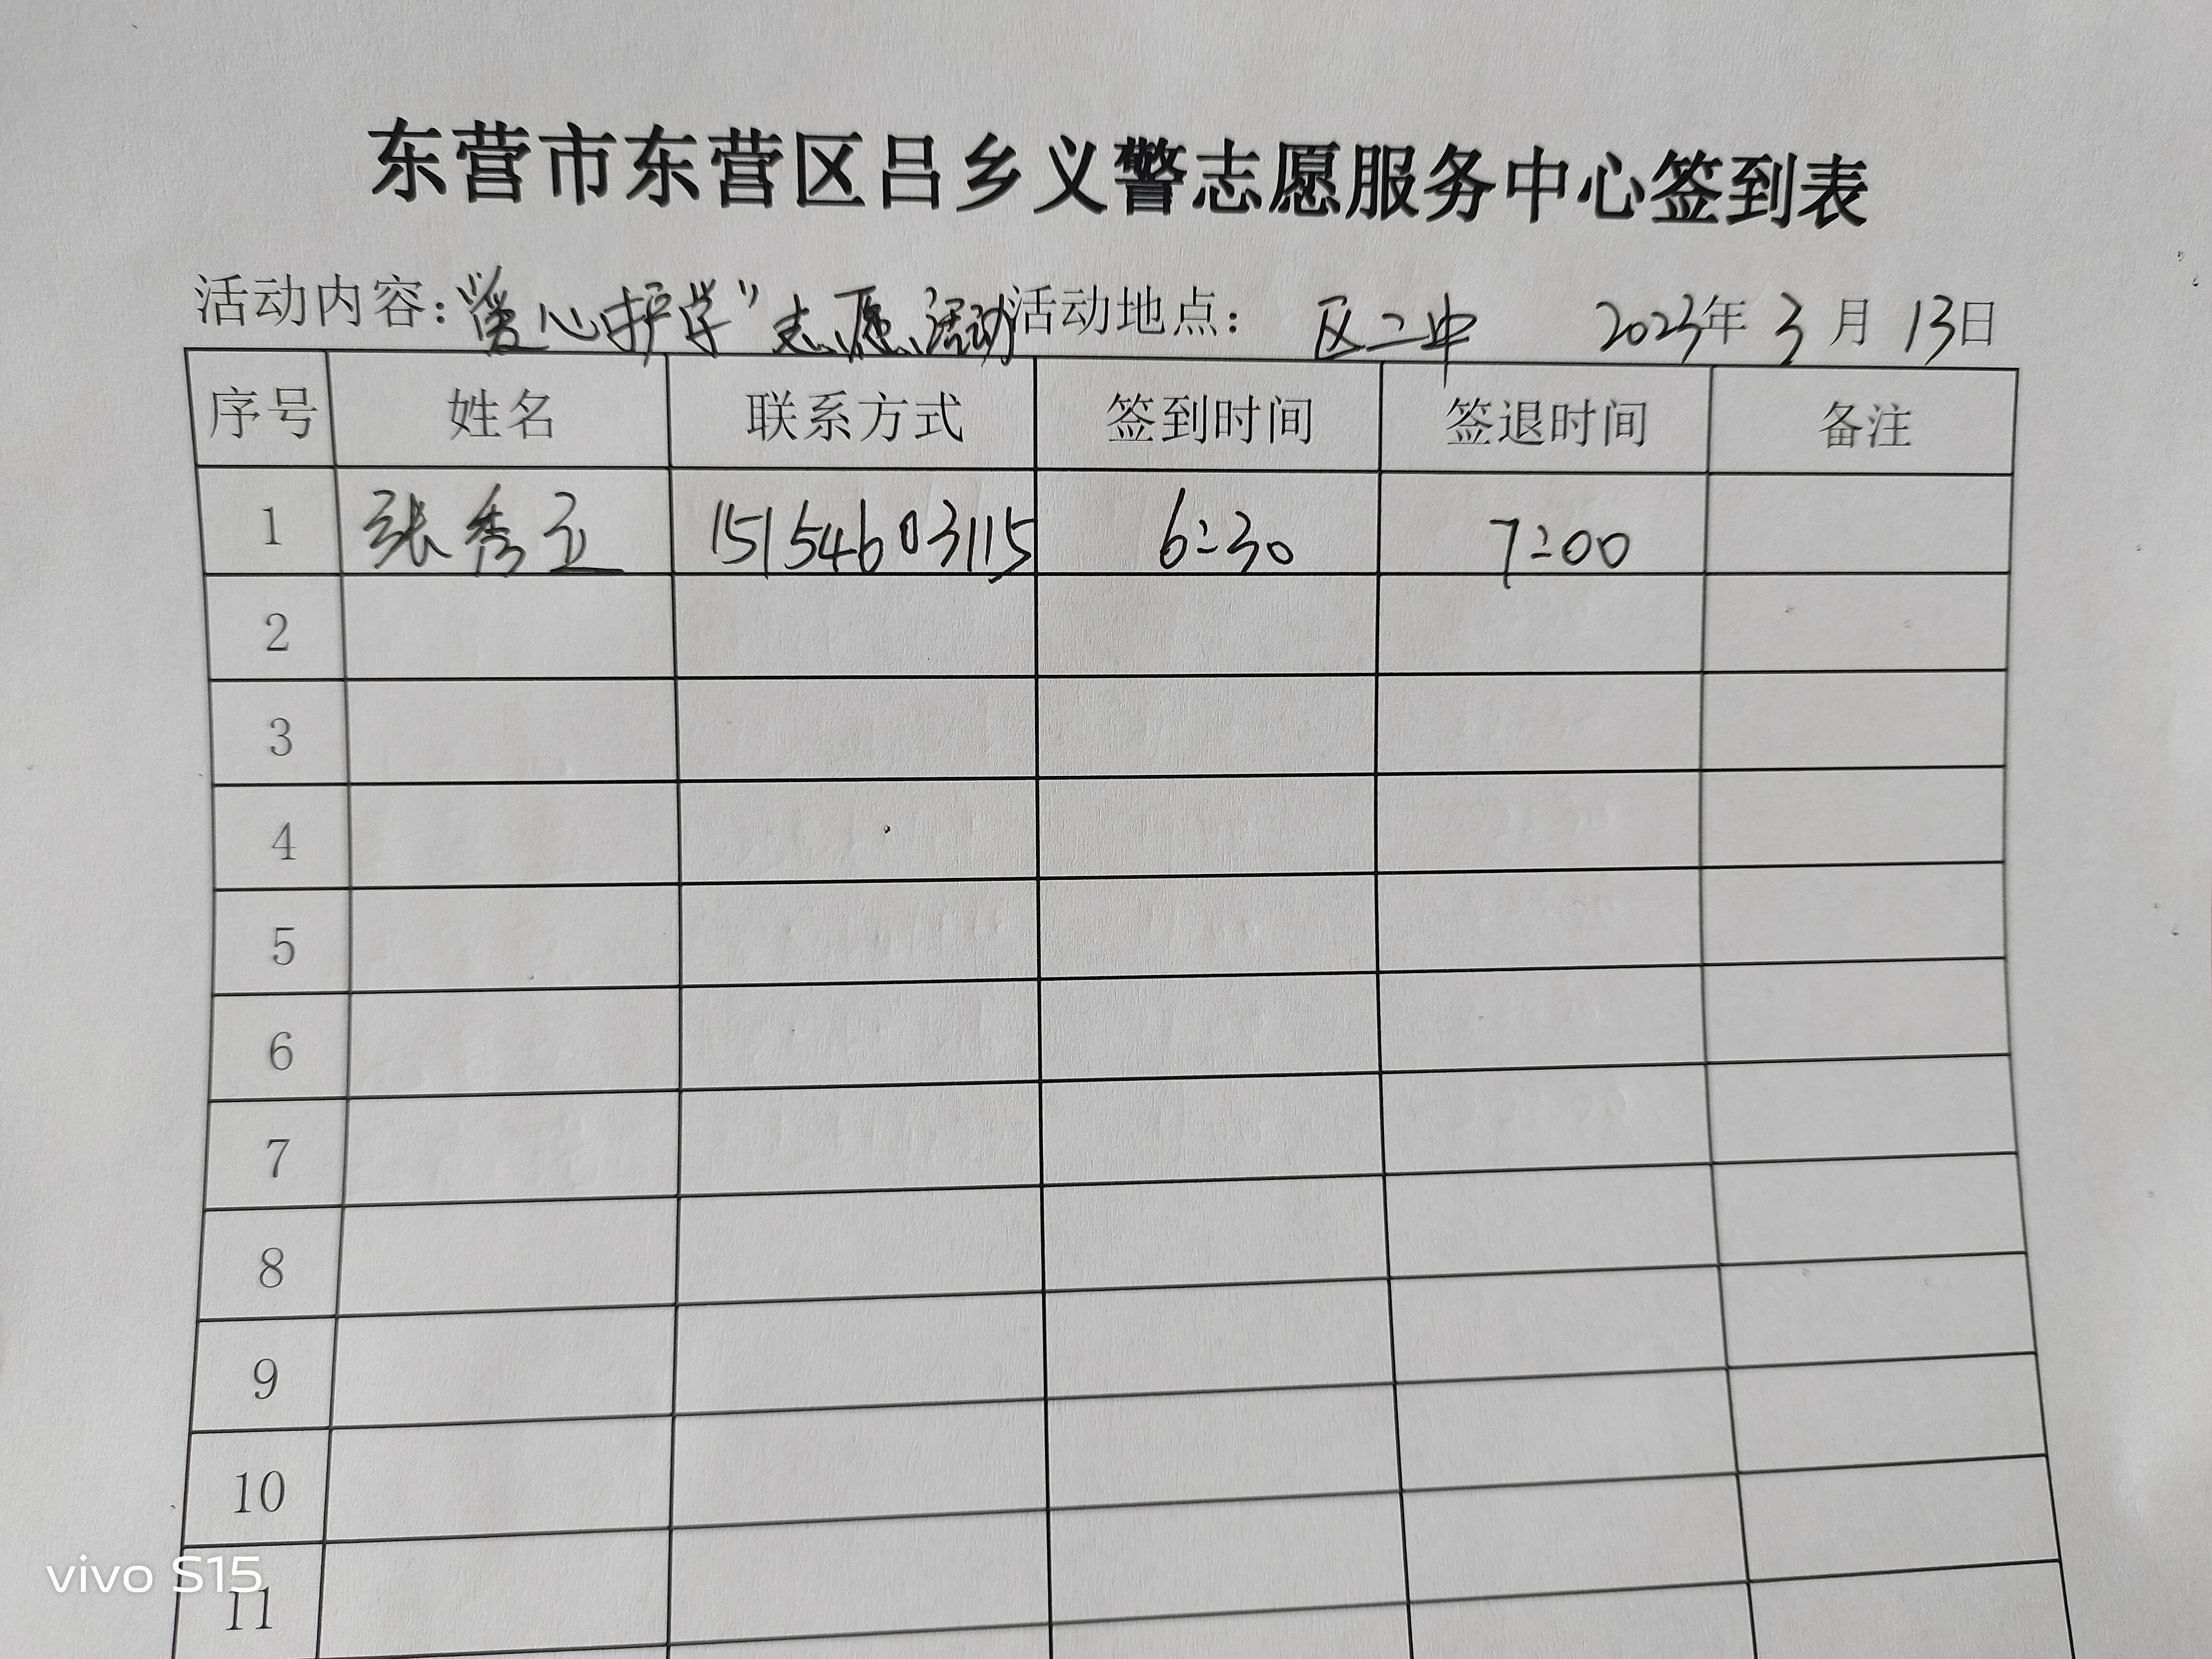 东营市东营区吕乡义警志愿服务中心签到表
活动内容：“爱心护学”志愿活动 活动地点： 区二中 2023年 3 月 13日
序号 姓名 联系方式 签到时间 签退时间 备注
1 张秀立 15154603115 6:30 7:00
2
3
4
5
6
7
8
9
10
11
vivo S15